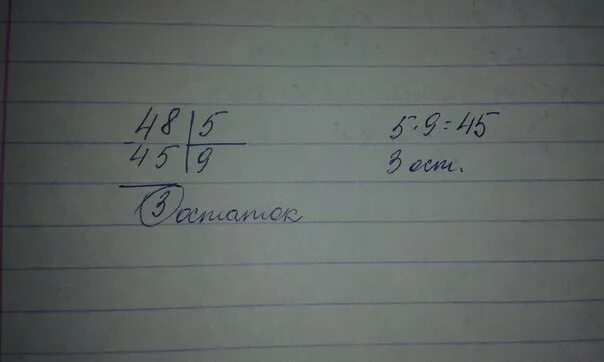 48 | 5
45 | 9
3 остаток
5 · 9 = 45
3 ост.